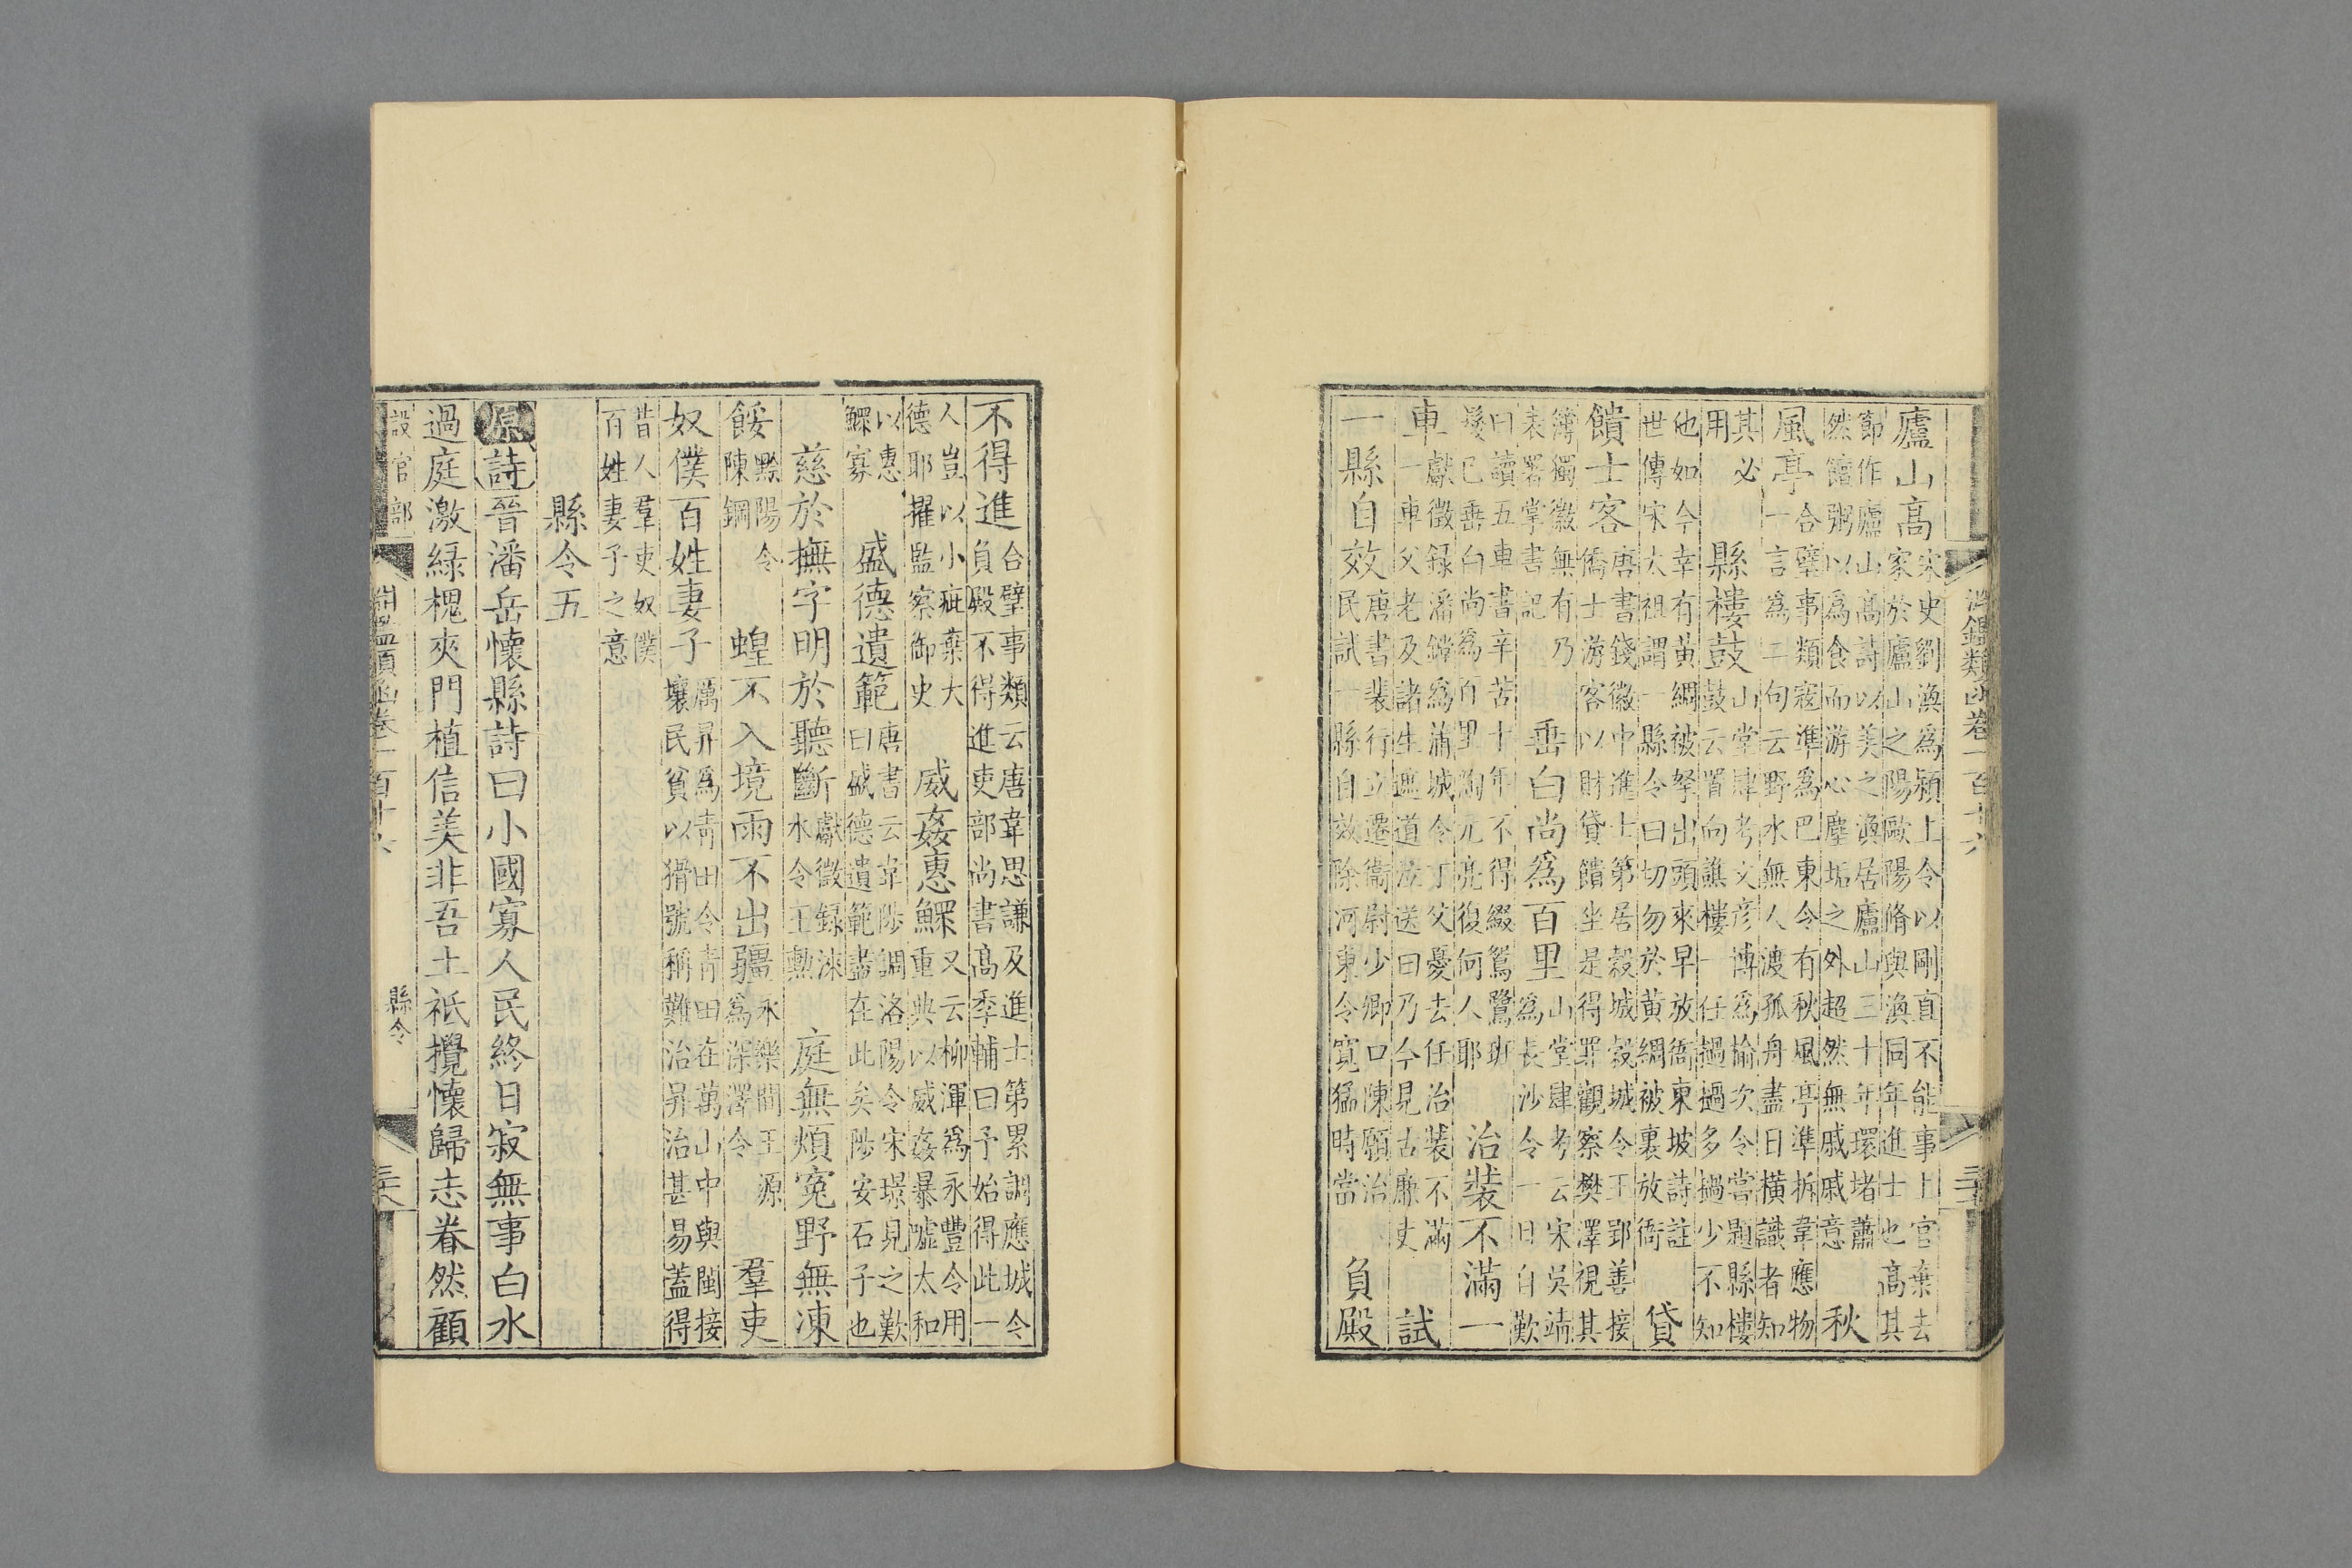 淵鑑類函卷一百十六
廬山高宋史劉渙為潁上令以剛直不能事上官棄去家於廬山之陽歐陽脩與渙同年進士也高其
節作廬山高詩以美之渙居廬山三十年環堵蕭然饘粥以為食而游心塵垢之外超然無戚戚意 秋
風亭合璧事類寇準為巴東令有秋風亭準拆韋應物一言為二句云野水無人渡孤舟盡日橫識者知
其必用 縣樓鼓山堂肆考文彥博為榆次令嘗題縣樓鼓云置向譙樓一任撾撾多撾少不知
他如今幸有黃綢被努出頭來早放衙東坡詩註世傳宋太祖謂一縣令曰切勿於黃綢被裏放衙 貸
饋士客唐書錢徽中進士第居穀城穀城令王郢善接僑士游客以財貸饋坐是得罪觀察樊澤視其
簿獨徽無有乃表署掌書記 垂白尚為百里山堂肆考云宋吳靖為長沙令一日自歎
曰讀五車書辛苦十年不得綴鴛鷺班鬢已垂白尚為百里陶元亮復何人耶 治裝不滿一
車獻徵録潘鏜為蒲城令丁父憂去任治裝不滿一車父老及諸生遮道泣送曰乃今見古廉吏 試
一縣自效唐書裴行立遷衛尉少卿口陳願治民試一縣自效除河東令寬猛時當 負殿
不得進合璧事類云唐韋思謙及進士第累調應城令負殿不得進吏部尚書高季輔曰予始得此一
人豈以小疵棄大德耶擢監察御史 威姦惠鰥又云柳渾為永豐令用重典以威姦暴噓太和
以惠鰥寡 盛德遺範唐書云韋陟調洛陽令宋璟見之歎曰盛德遺範盡在此矣陟安石子也
慈於撫字明於聽斷獻徵録淶水令王勲 庭無煩冤野無凍
餒黟陽令陳鋼 蝗不入境雨不出疆永樂間王源為深澤令 羣吏
奴僕百姓妻子厲昇為青田令青田在萬山中與閩接壤民貧以猾號稱難治昇治甚易蓋得
昔人羣吏奴僕百姓妻子之意
縣令五
原詩晉潘岳懷縣詩曰小國寡人民終日寂無事白水
過庭激緑槐夾門植信美非吾土祇攪懷歸志眷然顧
設官部 淵鑑類函卷一百十六 縣令